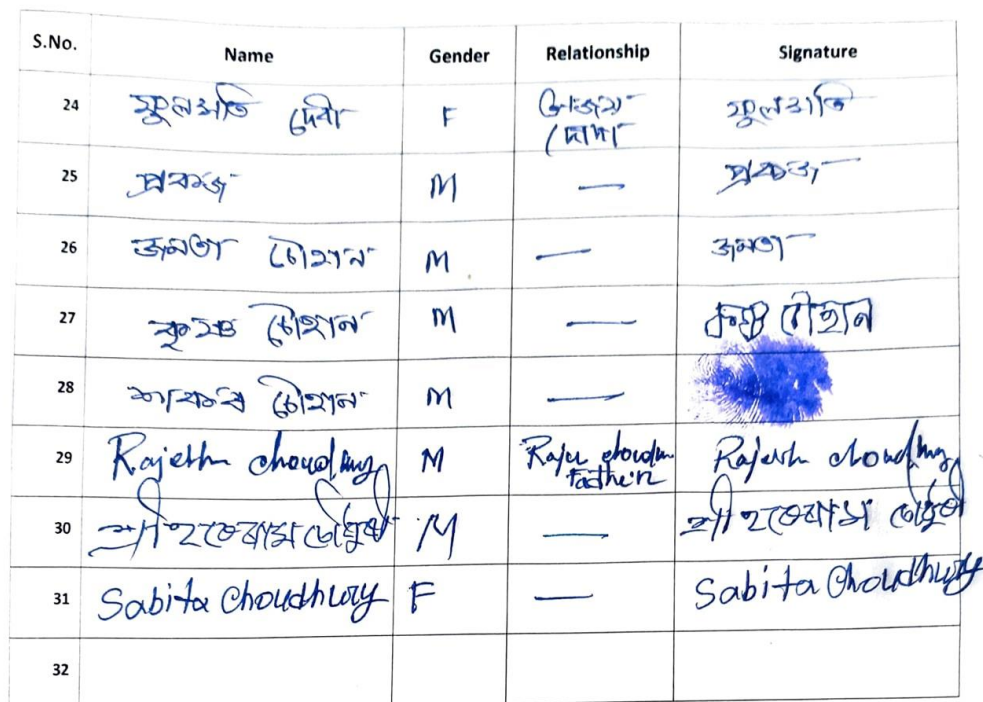 S.No. Name Gender Relationship Signature
24 ফুলমতি দেবী F ফুলমতি
25 M —
26 জনতা চৌহান M — জনতা
27 কৃষ্ণ চৌহান M — কৃষ্ণ চৌহান
28 চৌহান M —
29 Rajesh choudhury M Raju choudhu Rajesh choudhury
Father
30 শ্রী চৌধুৰী M — শ্রী চৌধুৰী
31 Sabita Choudhury F — Sabita Choudhury
32